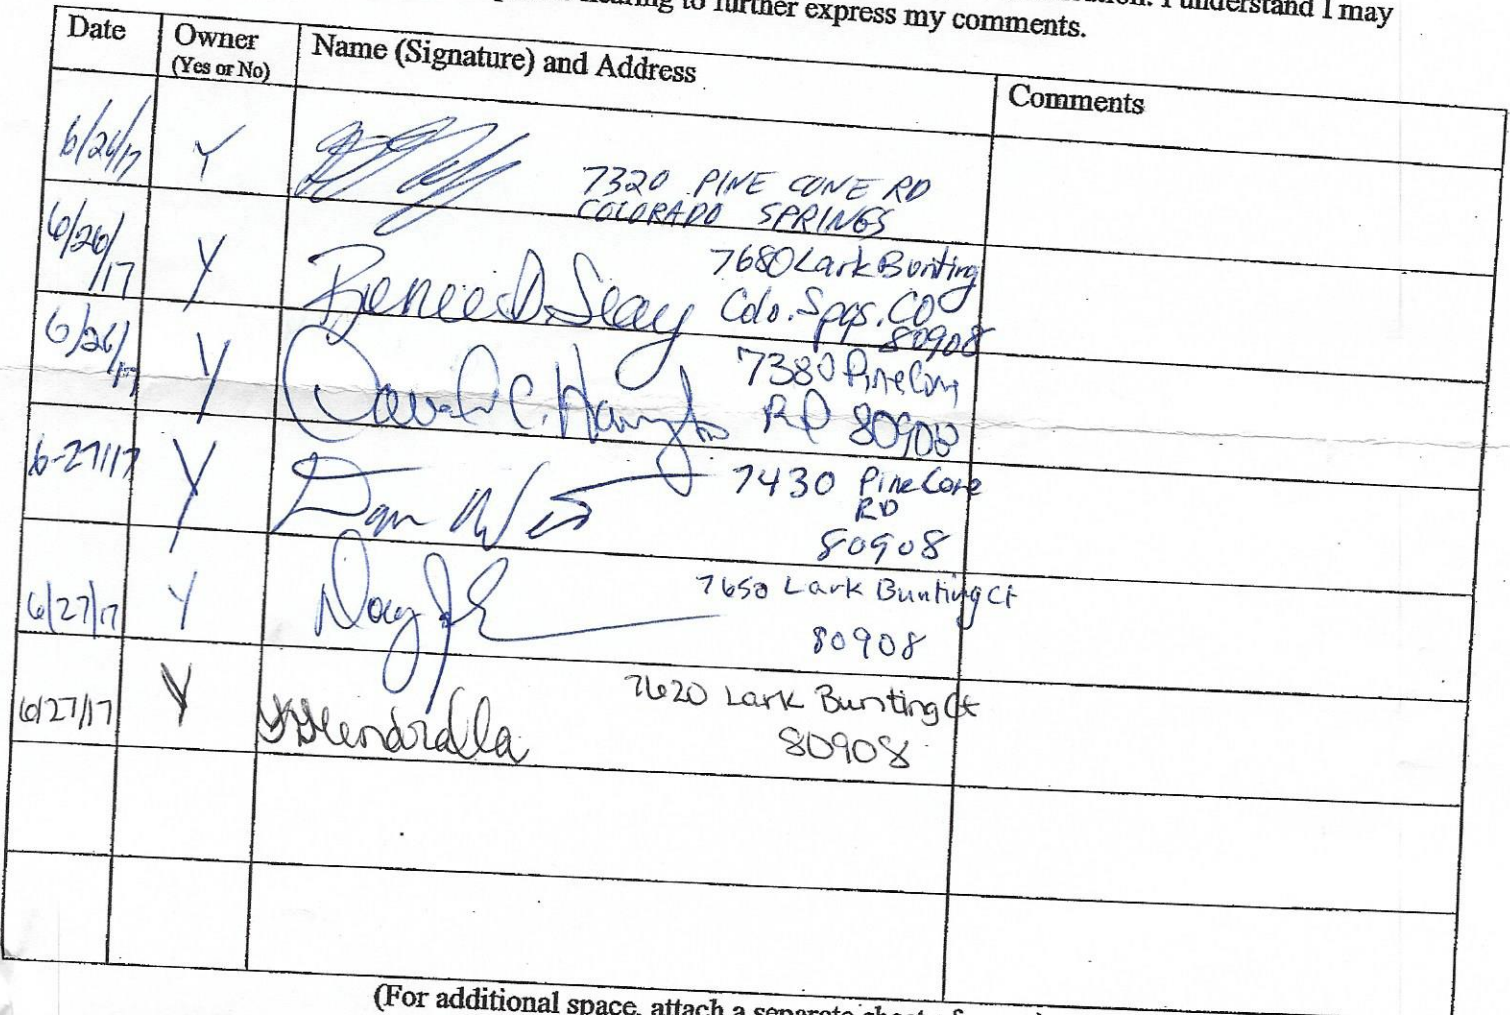 hearing to further express my comments. I understand I may
Date Owner (Yes or No) Name (Signature) and Address Comments
6/26/17 Y 7320 PINE CONE RD
COLORADO SPRINGS
6/26/17 Y Renee D. Seay 7680 Lark Bunting
Colo. Spgs. CO
80908
6/26/17 Y David C. 7380 Pine Cone
RD 80908
6-27/17 Y Dan 7430 Pine Cone
RD
80908
6/27/17 Y Doug 7650 Lark Bunting Ct
80908
6/27/17 Y 7620 Lark Bunting Ct
80908
(For additional space, attach a separate sheet